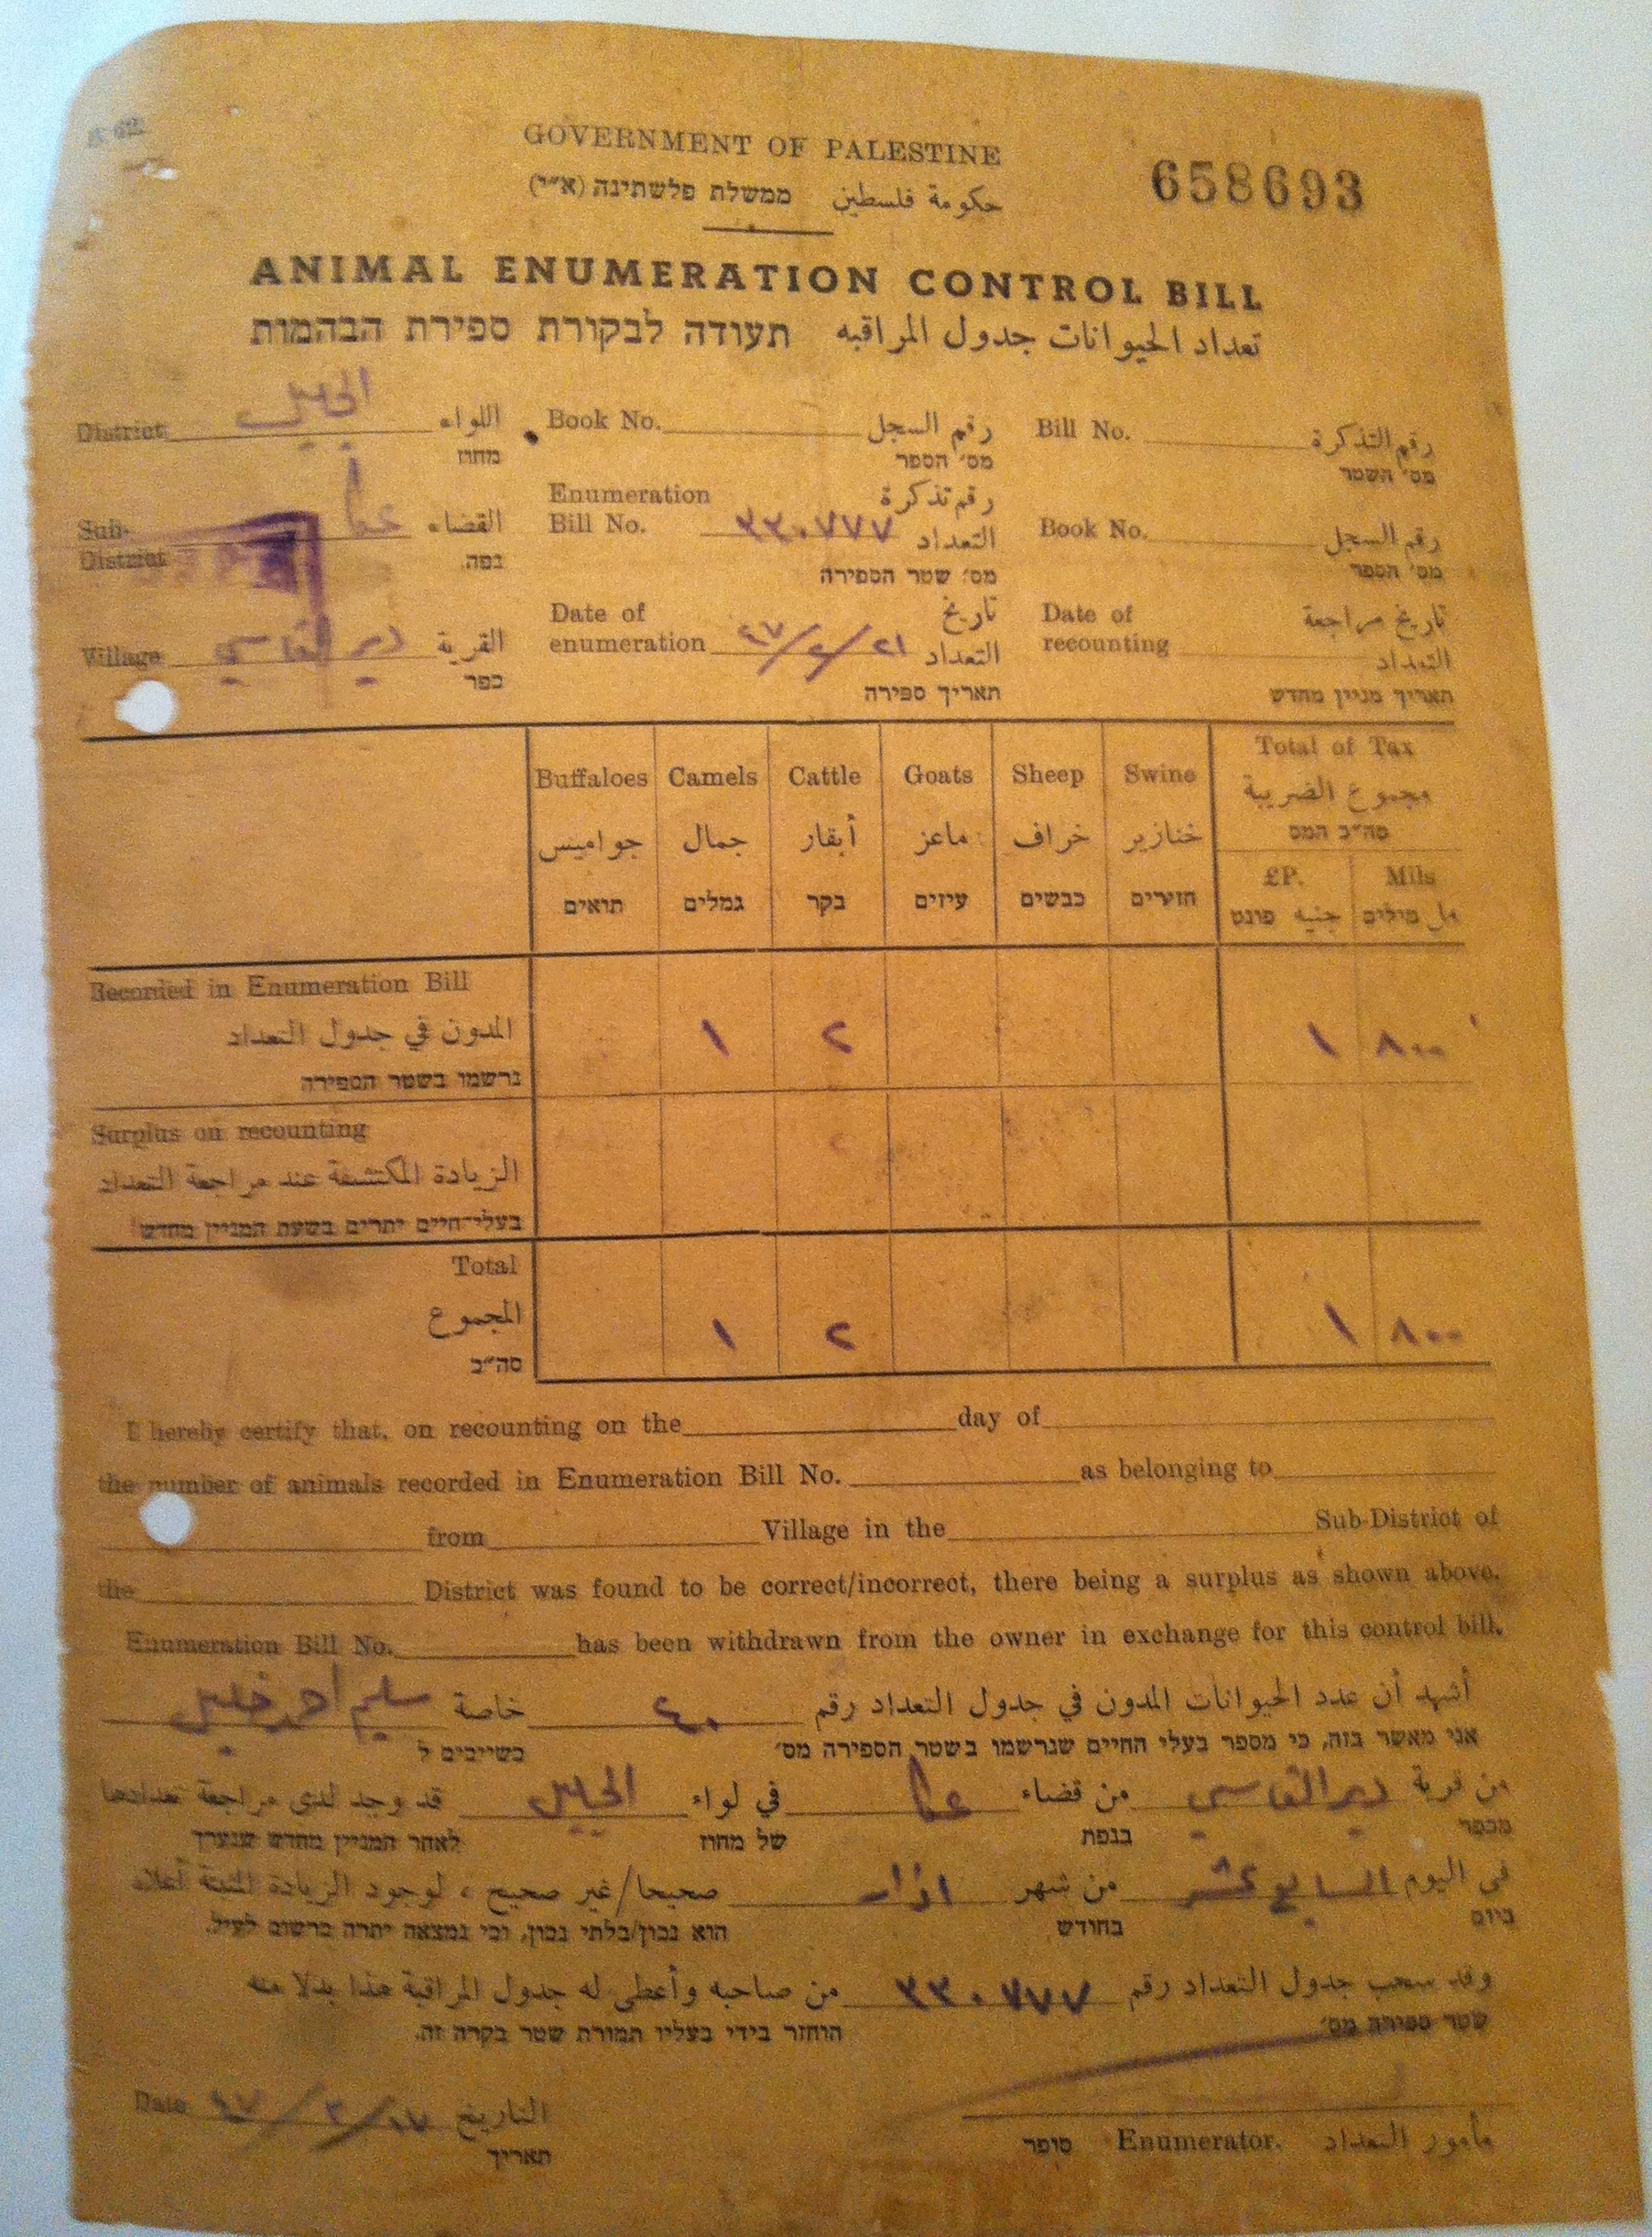 GOVERNMENT OF PALESTINE
حكومة فلسطين ממשלת פלשתינה (א״י)
658693
ANIMAL ENUMERATION CONTROL BILL
تعداد الحيوانات جدول المراقبه תעודה לבקורת ספירת הבהמות
District الجليل اللواء Book No. رقم السجل Bill No. رقم التذكرة
מחוז מס׳ הספר מס׳ השטר
Sub-District عكا القضاء Enumeration Bill No. ٣٣٠٧٧٧ رقم تذكرة التعداد Book No. رقم السجل
נפה. מס׳ שטר הספירה מס׳ הספר
Village دير القاسي القرية Date of enumeration تاريخ التعداد Date of recounting تاريخ مراجعة التعداد
כפר תאריך ספירה תאריך מניין מחדש
Buffaloes Camels Cattle Goats Sheep Swine Total of Tax
جواميس جمال أبقار ماعز خراف خنازير مجموع الضريبة
תואים גמלים בקר עיזים כבשים חזירים סה״כ המס
£P. Mils
جنيه פונט مل מילים
Recorded in Enumeration Bill
المدون في جدول التعداد ١ ٢ ١ ٨٠٠
נרשמו בשטר הספירה
Surplus on recounting
الزيادة المكتشفة عند مراجعة التعداد
בעלי־חיים יתרים בשעת המניין מחדש
Total
المجموع ١ ٢ ١ ٨٠٠
סה״כ
I hereby certify that, on recounting on the day of
the number of animals recorded in Enumeration Bill No. as belonging to
from Village in the Sub-District of
the District was found to be correct/incorrect, there being a surplus as shown above.
Enumeration Bill No. has been withdrawn from the owner in exchange for this control bill.
أشهد أن عدد الحيوانات المدون في جدول التعداد رقم ٤٠ خاصة سليم احمد خليل
אני מאשר בזה, כי מספר בעלי החיים שנרשמו בשטר הספירה מס׳ כשייכים ל
من قرية دير القاسي من قضاء عكا في لواء الجليل قد وجد لدى مراجعة تعدادها
מכפר בנפת של מחוז לאחר המניין מחדש שנערך
في اليوم السابع عشر من شهر اذار صحيحا/غير صحيح ، لوجود الزيادة المثبتة أعلاه
ביום בחודש הוא נכון/בלתי נכון, וכי נמצאה יתרה כרשום לעיל.
وقد سحب جدول التعداد رقم ٣٣٠٧٧٧ من صاحبه وأعطى له جدول المراقبة هذا بدلا منه
שטר ספירה מס׳ הוחזר בידי בעליו תמורת שטר בקרה זה.
Date ٤٧/٣/١٧ التاريخ
תאריך
סופר Enumerator. مأمور التعداد